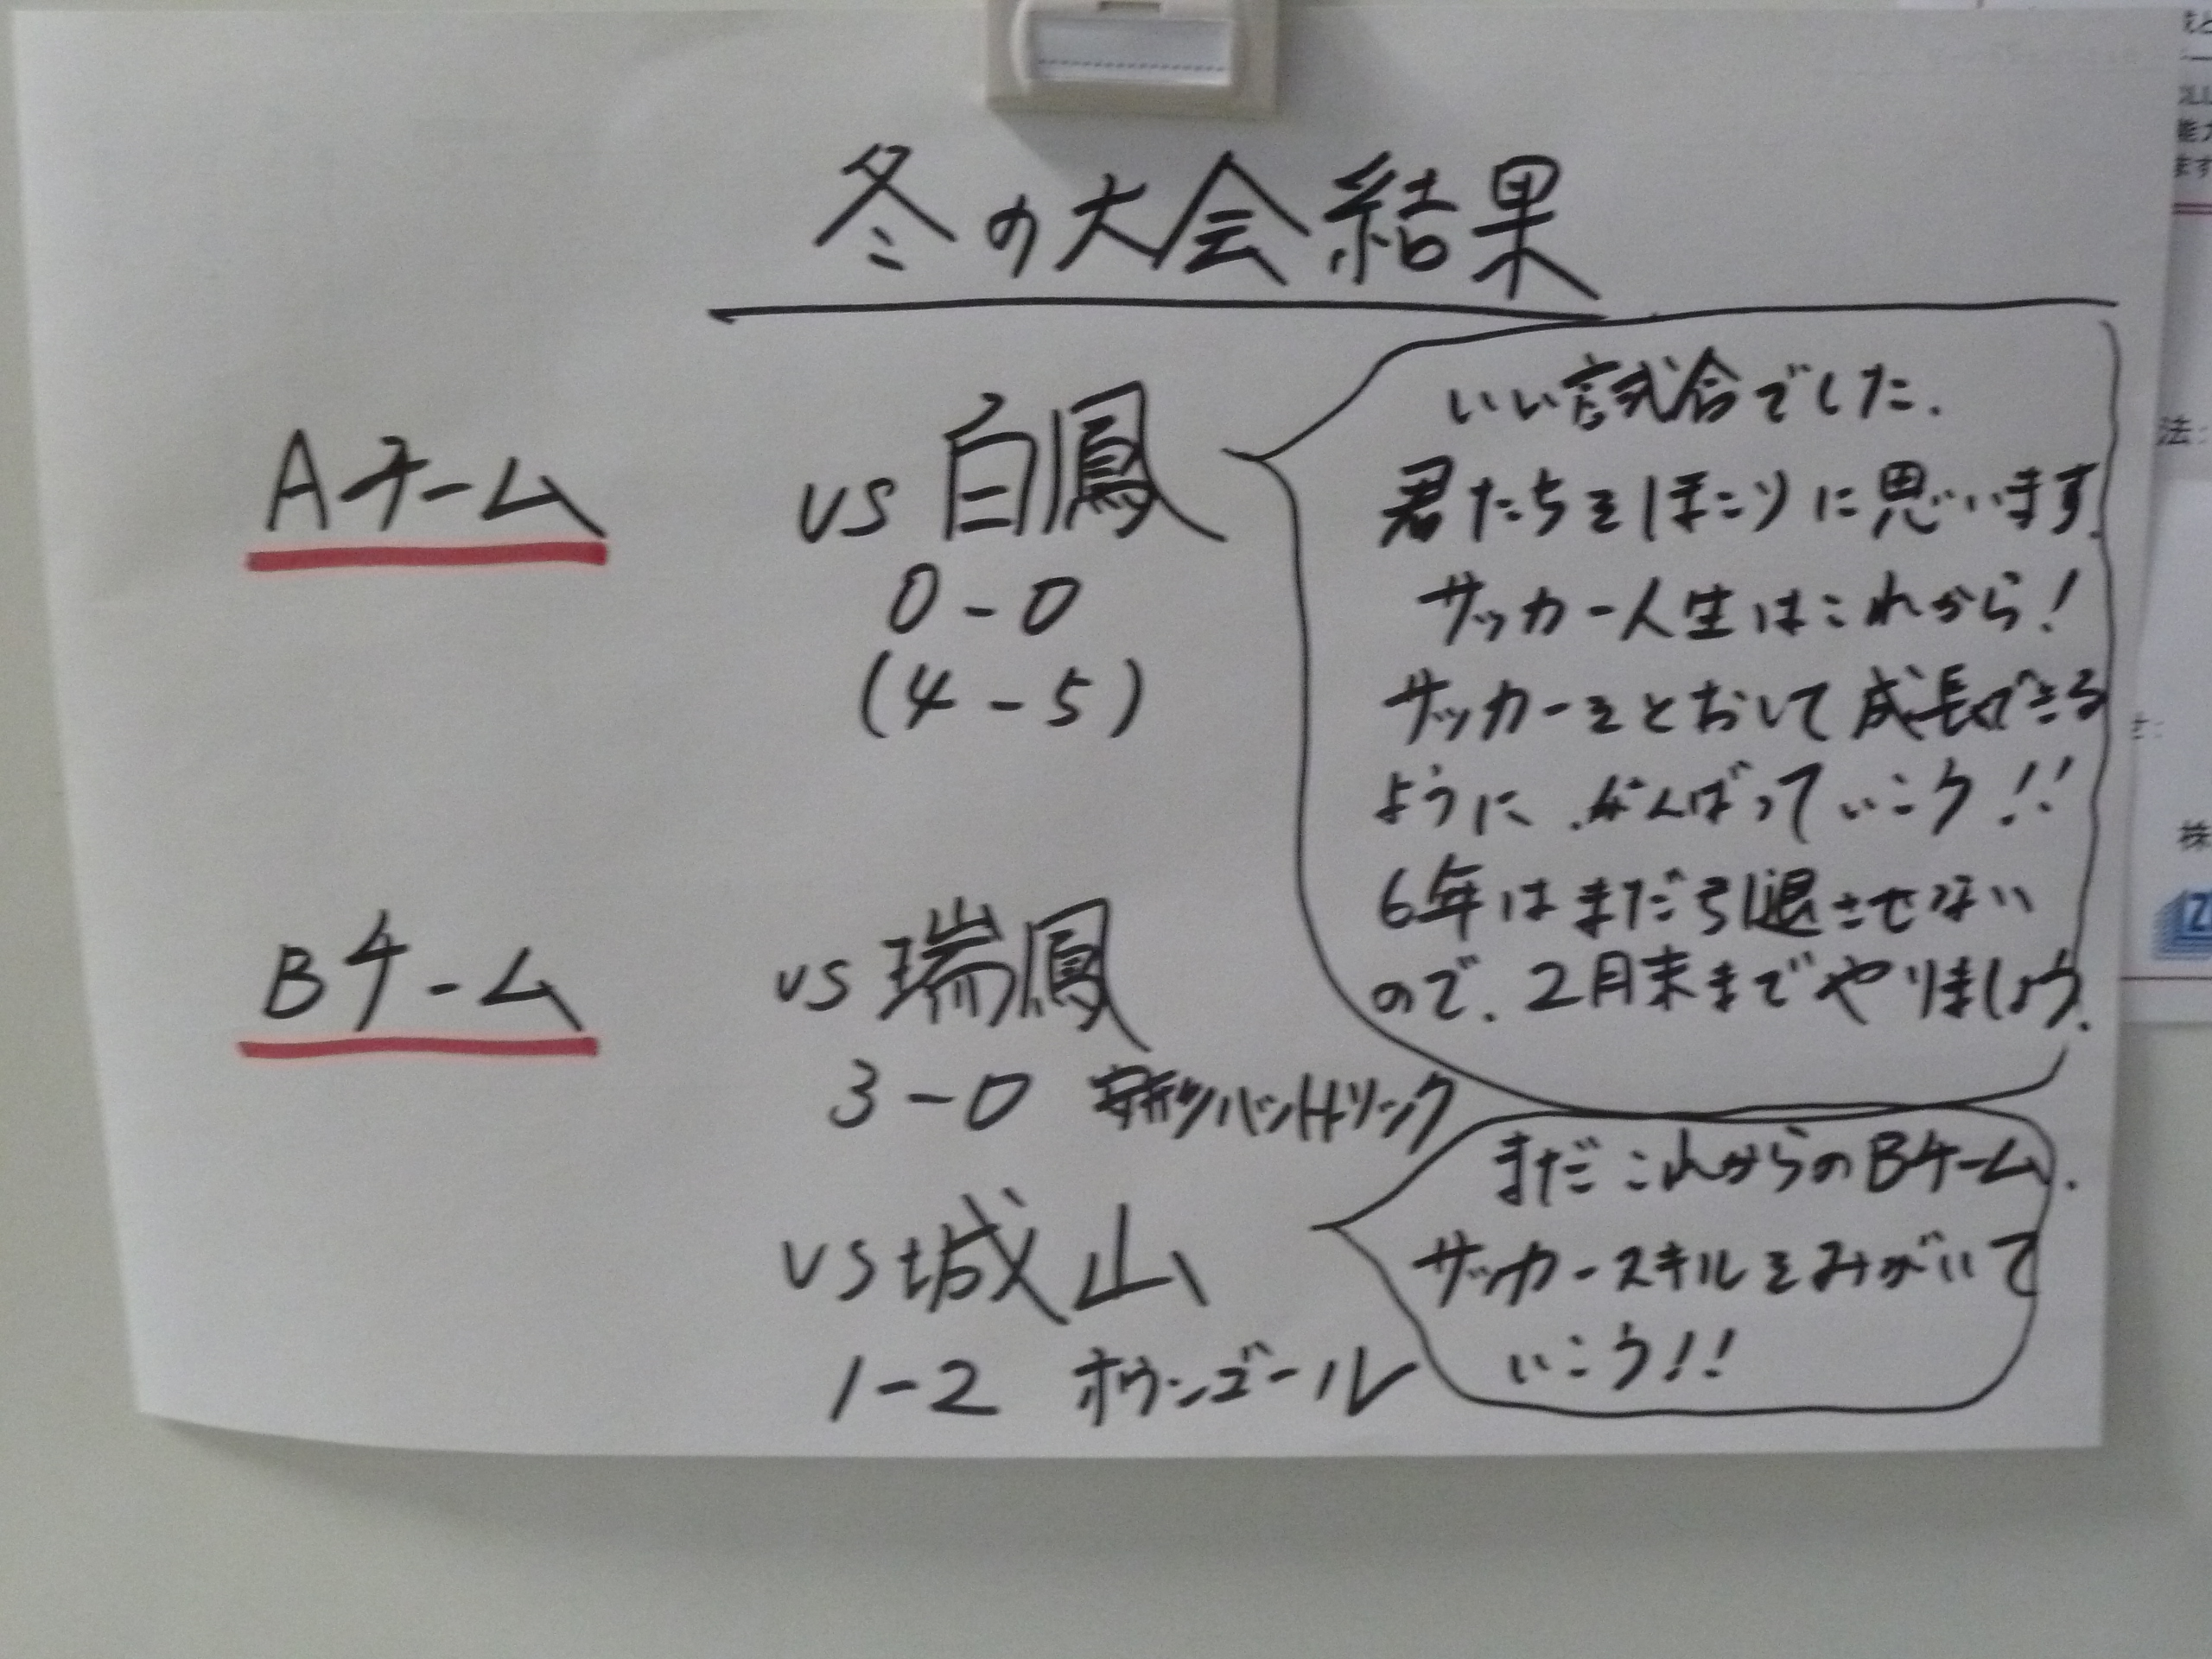 冬の大会結果
Aチーム
vs 白鳳
0-0
(4-5)
いい試合でした.
君たちをほこりに思います.
サッカー人生はこれから!
サッカーをとおして成長できる
ように、がんばっていこう!!
6年はまだ引退させない
ので、2月末までやりましょう.
Bチーム
vs 瑞鳳
3-0
vs 城山
1-2 オウンゴール
まだこれからのBチーム.
サッカースキルをみがいて
いこう!!
能力
ます
法:
株